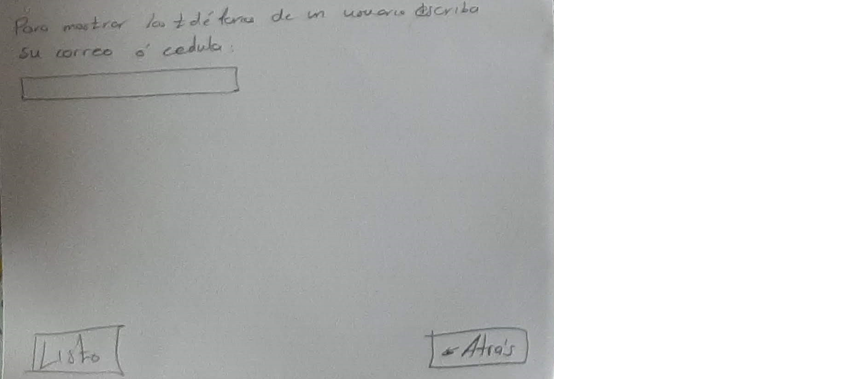 Para mostrar los de un usuario escriba
su correo ó cedula:
Listo
← Atrás